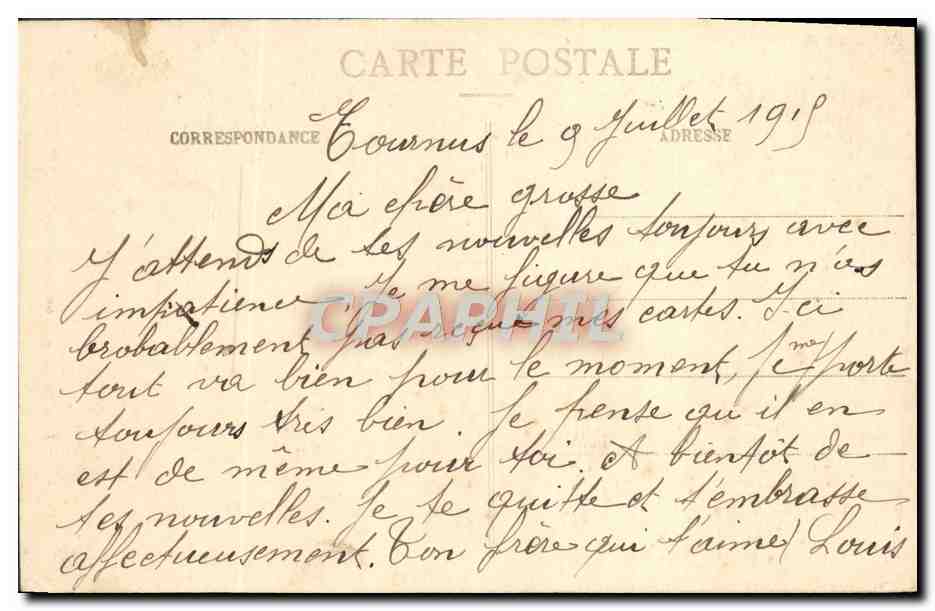 CARTE POSTALE
CORRESPONDANCE
ADRESSE
Tournus le 9 Juillet 1915
Ma chère grosse
J'attends de tes nouvelles toujours avec
impatience Je me figure que tu n'as
probablement pas reçue mes cartes. Ici
tout va bien pour le moment, Je me porte
toujours très bien. Je pense qu'il en
est de même pour toi. A bientôt de
tes nouvelles. Je te quitte et t'embrasse
affectueusement. Ton frère qui t'aime Louis
CPAPHIL